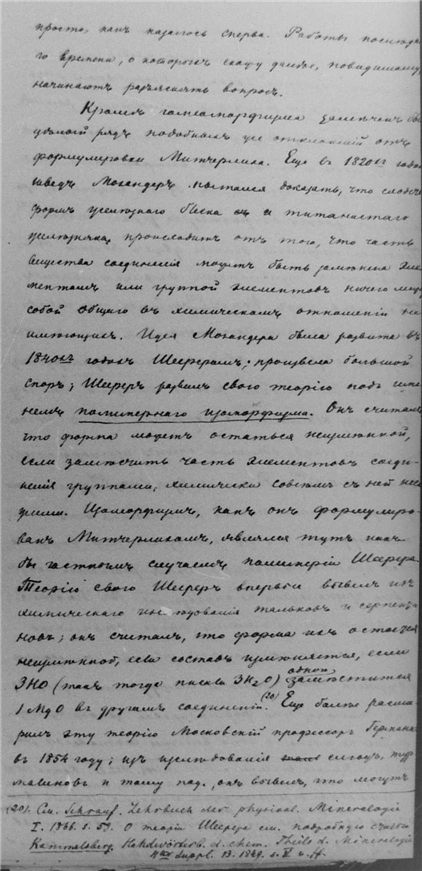 просто, какъ казалось сперва. Работы послѣдня-
го времени, о которыхъ скажу далѣе, повидимому,
начинаютъ разъяснять вопросъ.
Кромѣ гомеоморфизма замѣченъ былъ
цѣлый рядъ подобныхъ же отклоненій отъ
формулировки Митчерлиха. Еще въ 1820ыхъ годахъ
шведъ Мозандеръ пытался доказать, что сходство
формъ желѣзнаго блеска и титанистаго
желѣзняка, происходитъ отъ того, что часть
вещества соединенія можетъ быть замѣнена эле-
ментомъ или группой элементовъ ничего между
собой общаго въ химическомъ отношеніи не
имѣющихъ. Идея Мозандера была развита въ
1840ыхъ годахъ Шереромъ; произвела большой
споръ; Шереръ развилъ свою теорію подъ име-
немъ полимернаго изоморфизма. Онъ считалъ
что форма можетъ остаться неизмѣнной,
если замѣстить часть элементовъ соеди-
ненія группами, химически совсѣмъ съ ней несхо-
жими. Изоморфизмъ, какъ онъ формулиро-
ванъ Митчерлихомъ, являлся тутъ какъ
бы частнымъ случаемъ полимеріи Шерера.
Теорію свою Шереръ впервые вывелъ изъ
химическаго изслѣдованія тальковъ и серпенти-
новъ; онъ считалъ, что форма ихъ остается
неизмѣнной, если составъ измѣняется, если
3HO (такъ тогда писали 3H2O) замѣстится одной
1MgO въ другомъ соединеніи.(20) Еще болѣе расши-
рилъ эту теорію Московскій профессоръ Германъ
въ 1854 году; изъ изслѣдованія слюдъ, тур-
малиновъ и тому под., онъ вывелъ, что могутъ
(20). См. Schrauf. Lehrbuch der physical. Mineralogie
I. 1866. s. 59. О теоріи Шерера см. подробную статью
Rammelsberg. Handwörterb. d. chem. Theils d. Mineralogie
4tes Suppl. B. 1849.